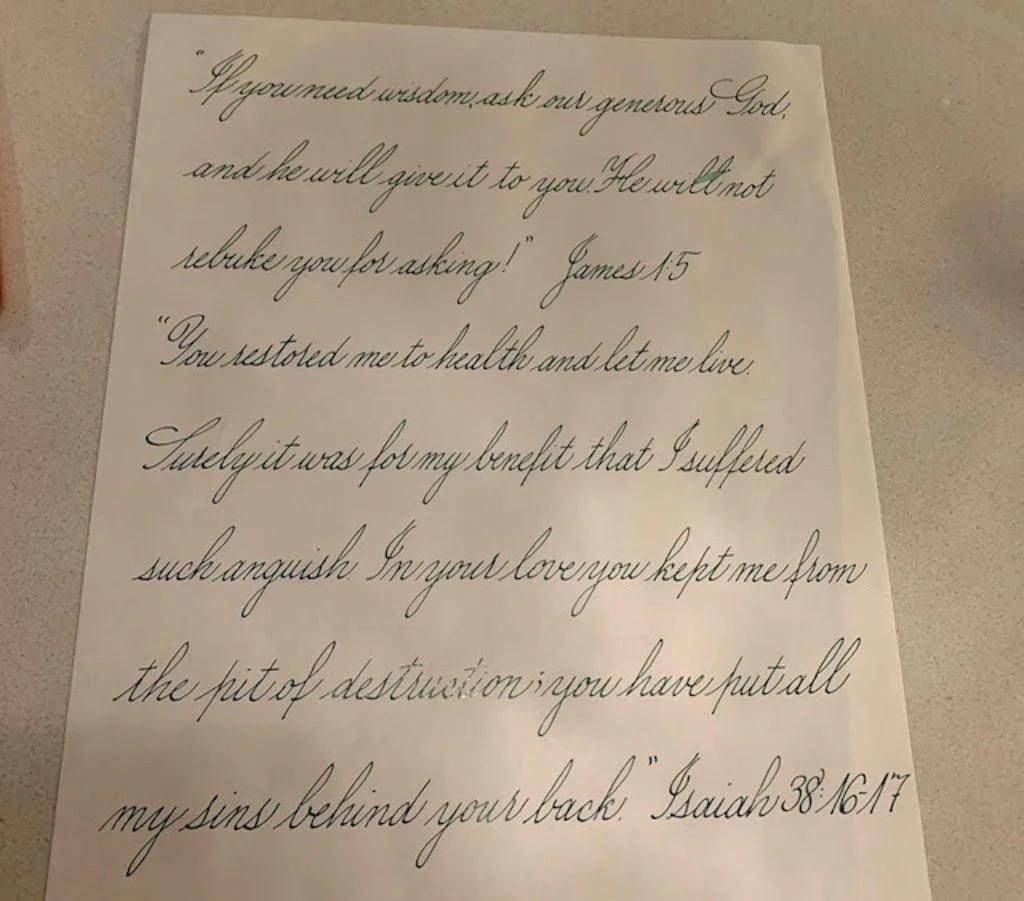 "If you need wisdom, ask our generous God,
and he will give it to you. He will not
rebuke you for asking!" James 1:5
"You restored me to health and let me live.
Surely it was for my benefit that I suffered
such anguish. In your love you kept me from
the pit of destruction; you have put all
my sins behind your back." Isaiah 38:16-17